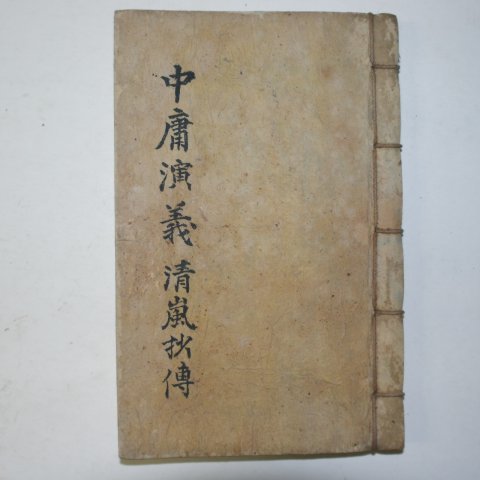 中庸演義 清嵐抄傳